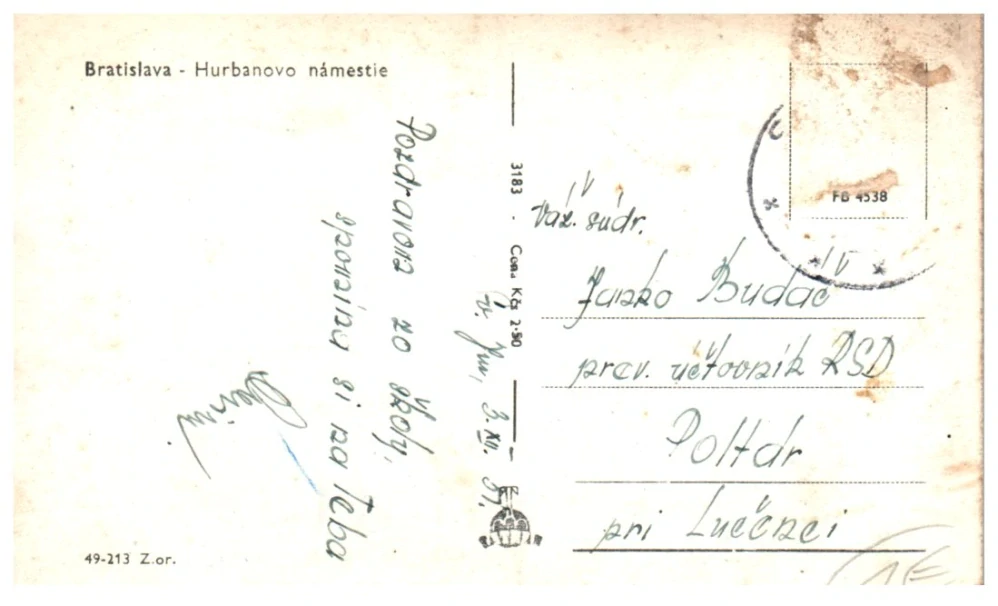 Bratislava - Hurbanovo námestie
Pozdravom zo školy,
spomínu si na Teba
3. XII. 51.
3183 · Cena Kčs 2·50
FB 4538
Váž. súdr.
Janko Budač
prev. účtovník RSD
Poltár
pri Lučenci
49-213 Z.or.